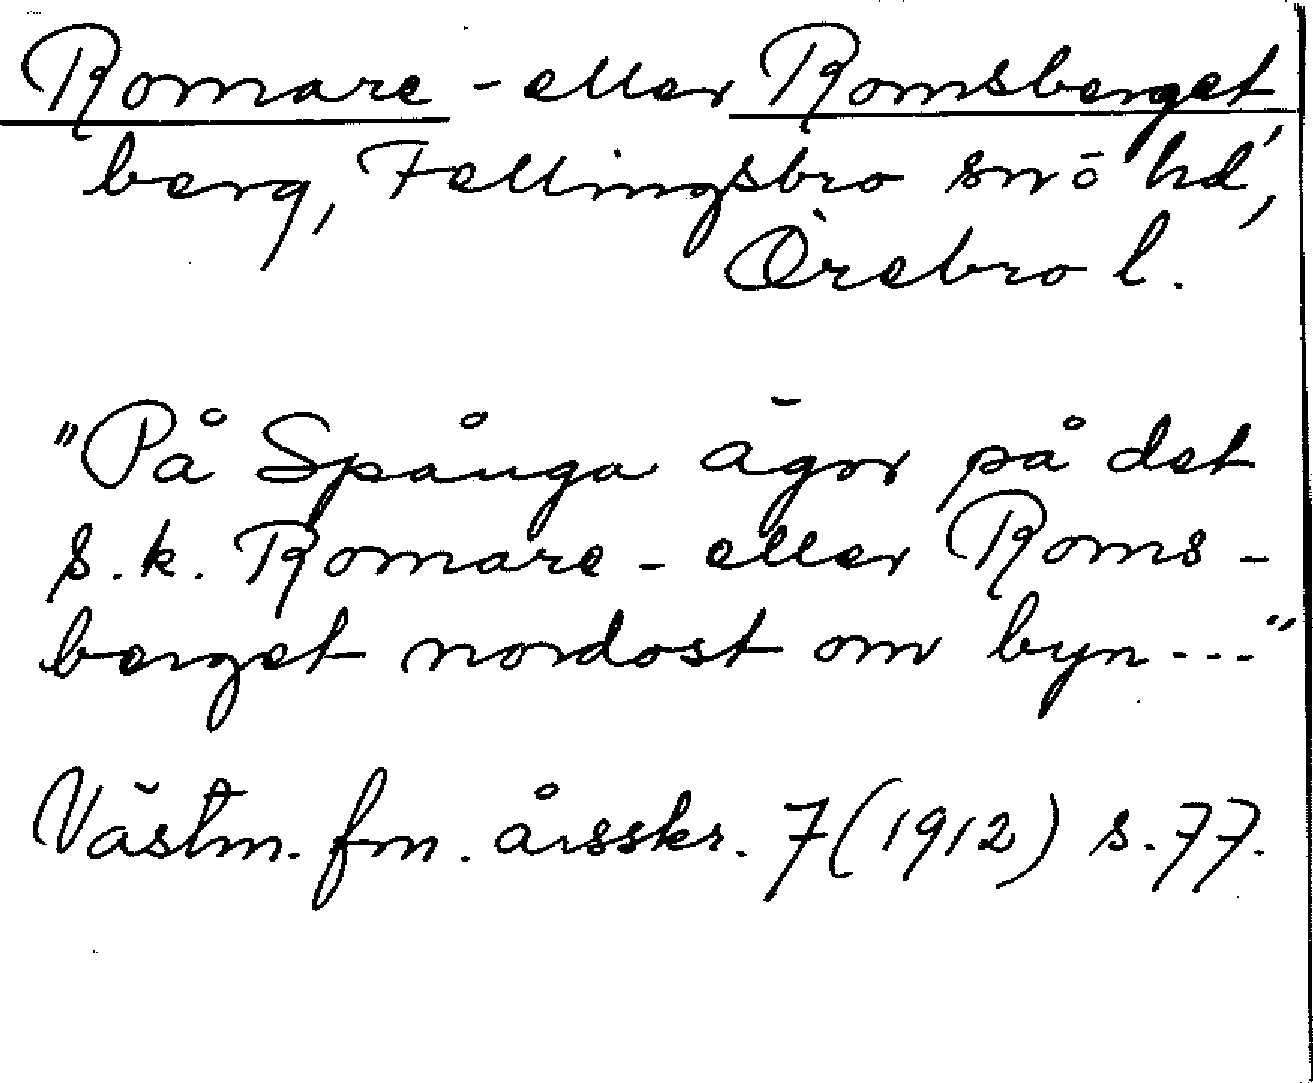 Romare- eller Romsberget
berg, Fellingsbro sn o hd,
Örebro l.
"På Spånga ägor på det
s.k. Romare- eller Roms-
berget nordost om byn---"
Västm. fm. årsskr. 7(1912) s.77.